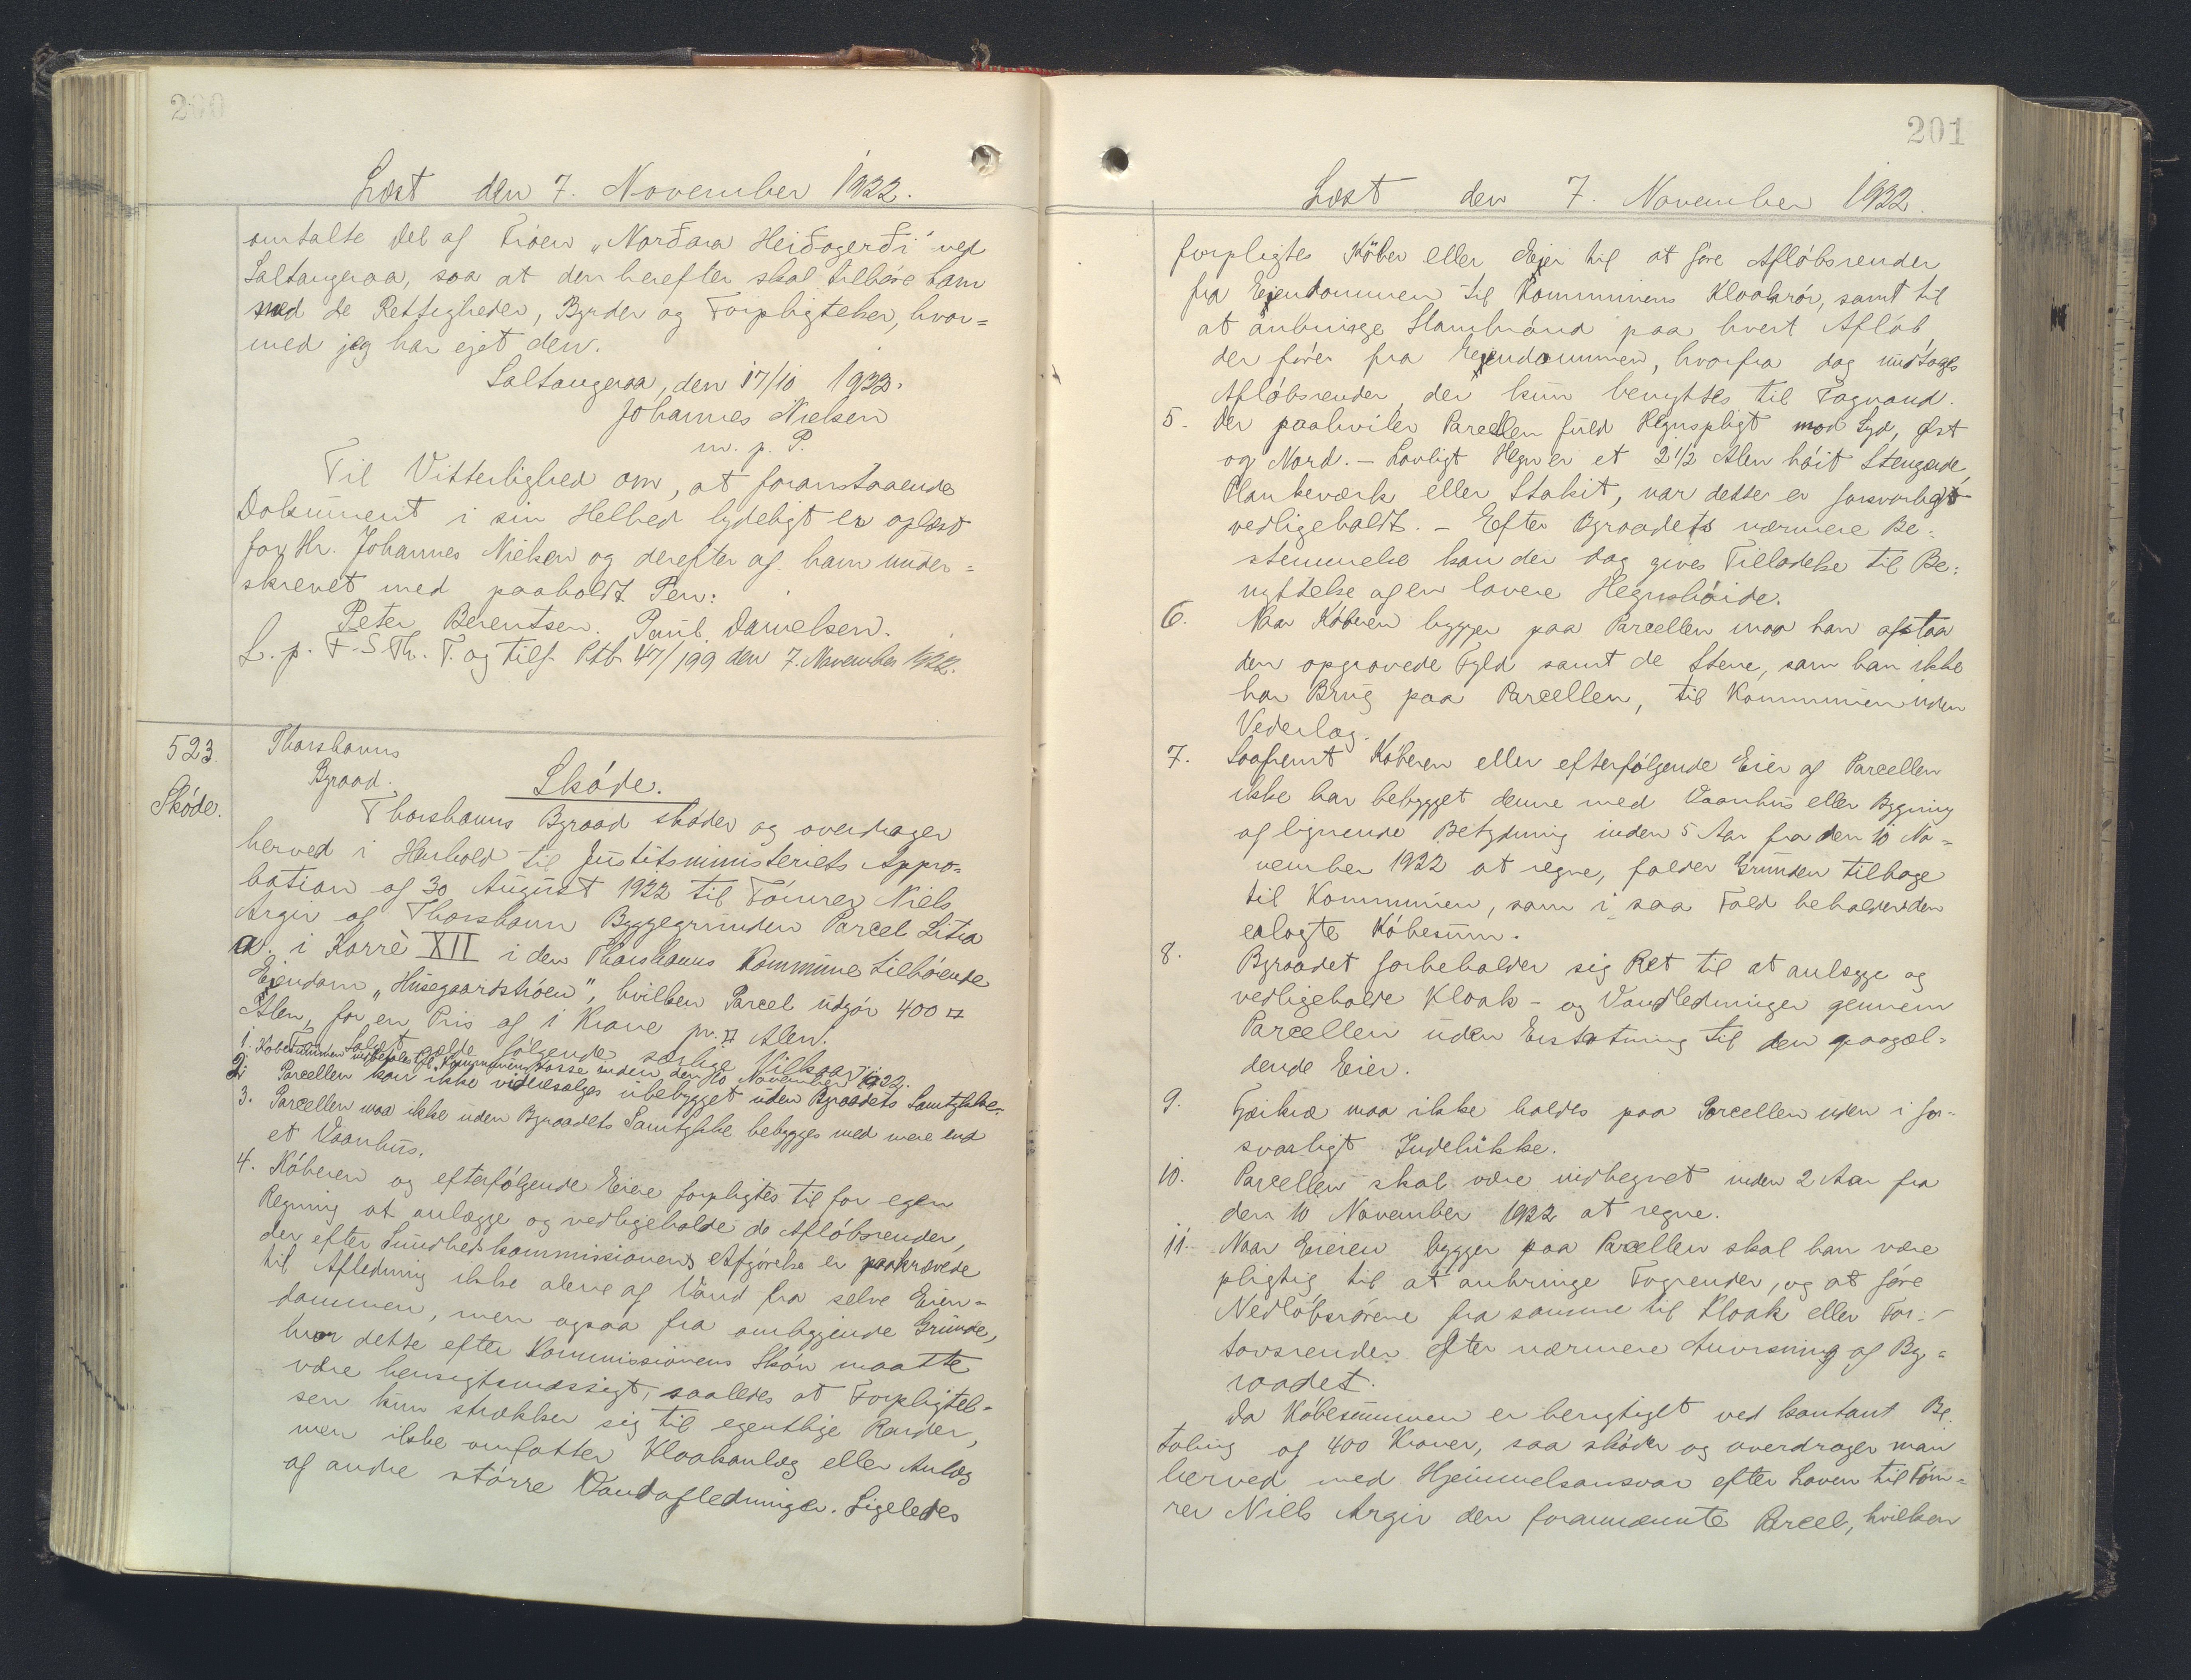 200
Læst den 7. November 1922.
omtalte Del af Trøen „Norðara Heiðagerði" ved
Saltangeraa, saa at den herefter skal tilhøre ham
med de Rettigheder, Byrder og Forpligtelser, hvor=
med jeg har ejet den.
Saltangeraa, den 17/10 1922.
Johannes Nielsen
m. p. P.
Til Vitterlighed om, at foranstaaende
Dokument i sin Helhed lydeligt er oplæst
for Hr. Johannes Nielsen og derefter af ham under=
skrevet med paaholdt Pen:
Peter Berentsen. Poul Danielsen.
L. p. F. S. Th. T. og tilf. Ptb. 47/199 den 7. November 1922.
523
Skøde.
Thorshavns
Byraad.
Skøde.
Thorshavns Byraad skøder og overdrager
herved i Henhold til Justitsministeriets Appro=
bation af 30 August 1922 til Tømrer Niels
Argir af Thorshavn Byggegrunden Parcel Litra
a. i Karrè XII i den Thorshavns Kommune tilhørende
Ejendom „Husegaardstrøen", hvilken Parcel udgør 400 □
Alen, for en Pris af 1 Krone pr. □ Alen.
For Salget gælde følgende særlige Vilkaar:
1. Købesummen indbetales til Kommunens Kasse inden den 10 November 1922.
2. Parcellen kan ikke videresælges ubebygget uden Byraadets Samtykke.
3. Parcellen maa ikke uden Byraadets Samtykke bebygges med mere end
et Vaanhus.
4. Køberen og efterfølgende Eiere forpligtes til for egen
Regning at anlægge og vedligeholde de Afløbsrender,
der efter Sundhedskommissionens Afgørelse er paakrævede
til Afledning ikke alene af Vand fra selve Eien=
dommen, men ogsaa fra omliggende Grunde,
hvor dette efter Kommissionens Skøn maatte
være hensigtsmæssigt, saaledes at Forpligtel=
sen kun strækker sig til egentlige Render,
men ikke omfatter Kloakanlæg eller Anlæg
af andre større Vandafledninger. Ligeledes
201
Læst den 7. November 1922.
forpligtes Køber eller Ejer til at føre Afløbsrender
fra Ejendommen til Kommunens Kloakrør, samt til
at anbringe Slambrønd paa hvert Afløb
der fører fra Ejendommen, hvorfra dog undtages
Afløbsrender, der kun benyttes til Tagvand.
5. Der paahviler Parcellen fuld Hegnspligt mod Syd, Øst
og Nord. - Lovligt Hegn er et 2 1/2 Alen høit Stengærde,
Plankeværk eller Stakit, naar dette er forsvarligt
vedligeholdt. - Efter Byraadets nærmere Be=
stemmelse kan der dog gives Tilladelse til Be=
nyttelse af en lavere Hegnshøide.
6. Naar Køberen bygger paa Parcellen maa han afstaa
den opgravede Fyld samt de Stene, som han ikke
har Brug paa Parcellen, til Kommunen uden
Vederlag.
7. Saafremt Køberen eller efterfølgende Eier af Parcellen
ikke har bebygget denne med Vaanhus eller Bygning
af lignende Betydning inden 5 Aar fra den 10 No=
vember 1922 at regne, falder Grunden tilbage
til Kommunen, som i saa Fald beholder den
erlagte Købesum.
8. Byraadet forbeholder sig Ret til at anlægge og
vedligeholde Kloak- og Vandledninger gennem
Parcellen uden Erstatning til den paagæl=
dende Eier.
9. Fjerkræ maa ikke holdes paa Parcellen uden i for=
svarligt Indelukke.
10. Parcellen skal være indhegnet inden 2 Aar fra
den 10 November 1922 at regne.
11. Naar Eieren bygger paa Parcellen skal han være
pligtig til at anbringe Tagrender, og at føre
Nedløbsrørene fra samme til Kloak eller For=
tovsrender efter nærmere Anvisning af By=
raadet.
Da Købesummen er berigtiget ved kontant Be=
taling af 400 Kroner, saa skøder og overdrager man
herved med Hjemmelsansvar efter Loven til Tøm=
rer Niels Argir den forannævnte Parcel, hvilken